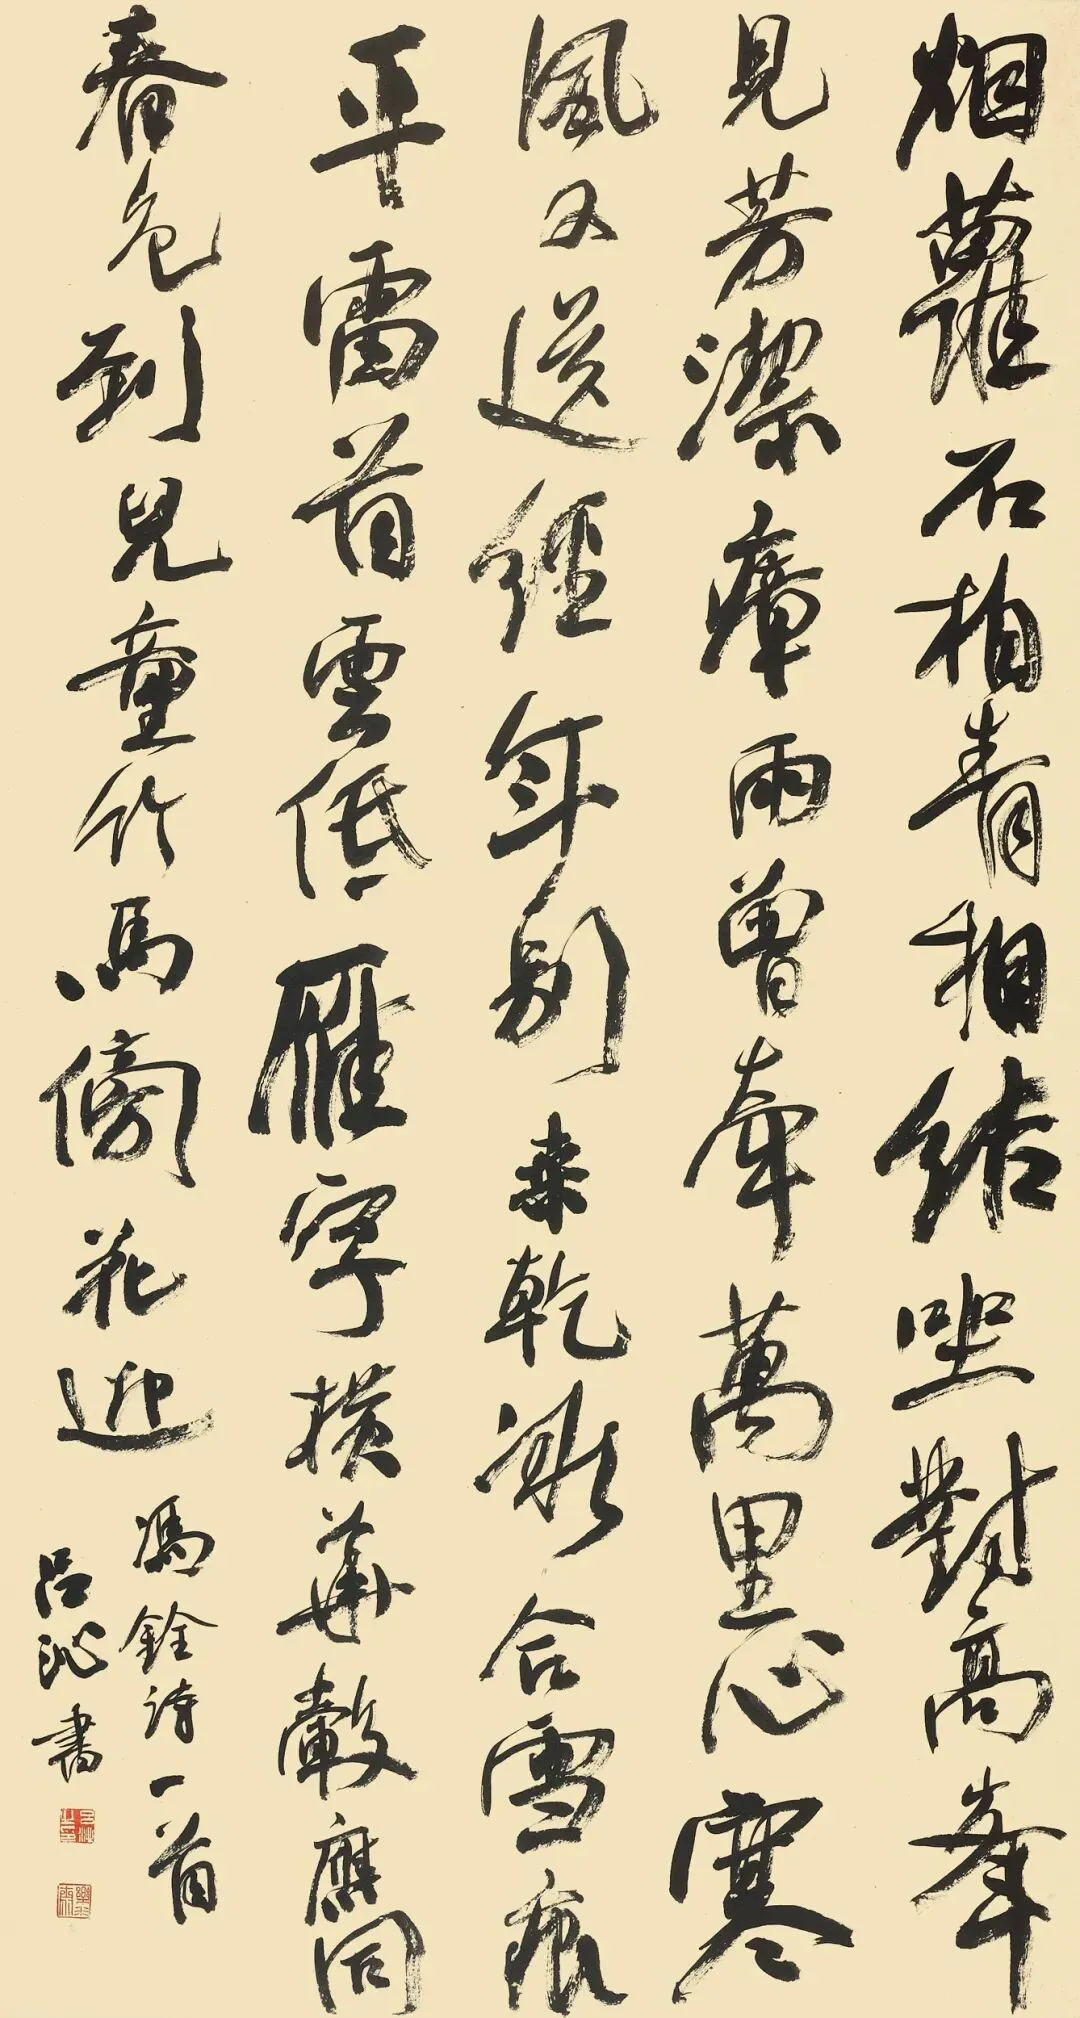 烟蘿石柏青相結坐對高峯
見芳潔瘴雨曾牽萬里心寒
風又送經年別来乾澌合雪痕
平雷首雲低雁字横華轂應同
春色到兒童竹馬傍花迎
馮銓詩一首
呂沁書